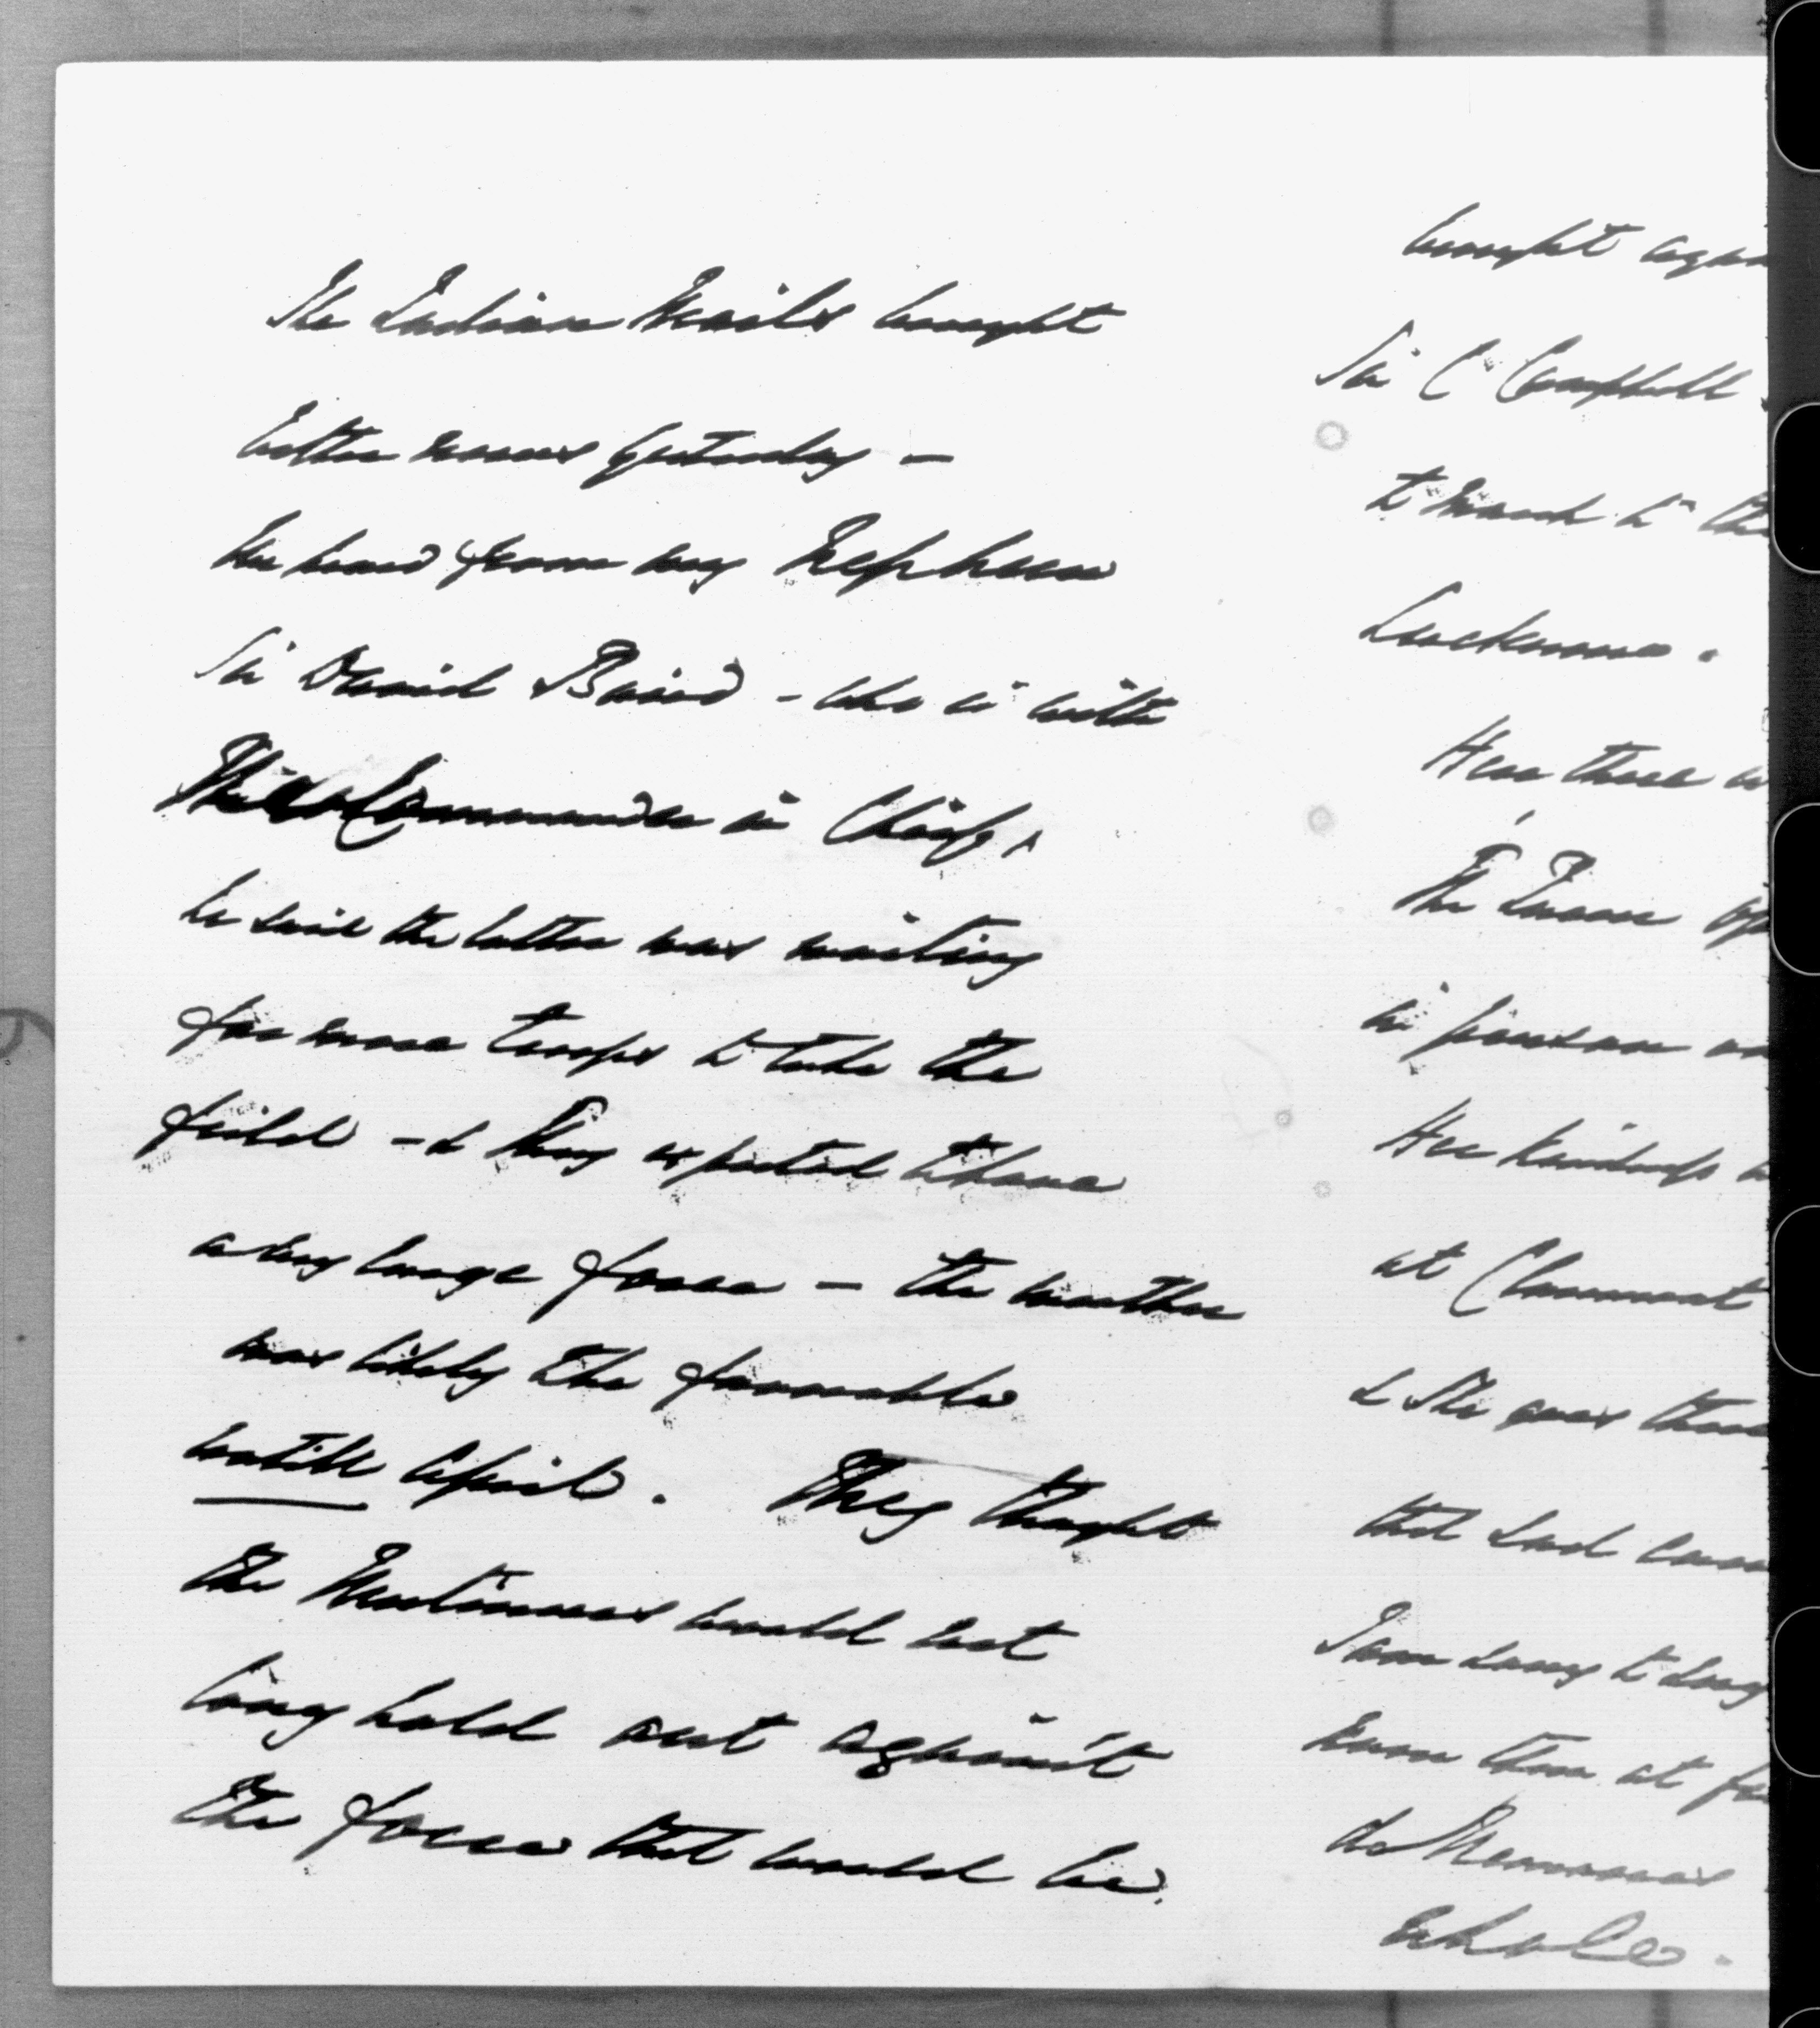 The Indian Mails brought
better news yesterday –
We heard from my Nephew
Sir David Baird – who is with
The Commander in Chief,
he said the latter was waiting
for more troops to take the
field – & they expected to have
a very large force – the weather
was likely to be favorable
untill April. They thought
the Mutineers would not
long hold out against
the force that would be
brought again
Sir C Campbell
to March to the
Lucknow.
Here there
The Queen
in person
Her kindness
at Claremont
& She
that
I am sorry to
know them at
de Nemours
whole.